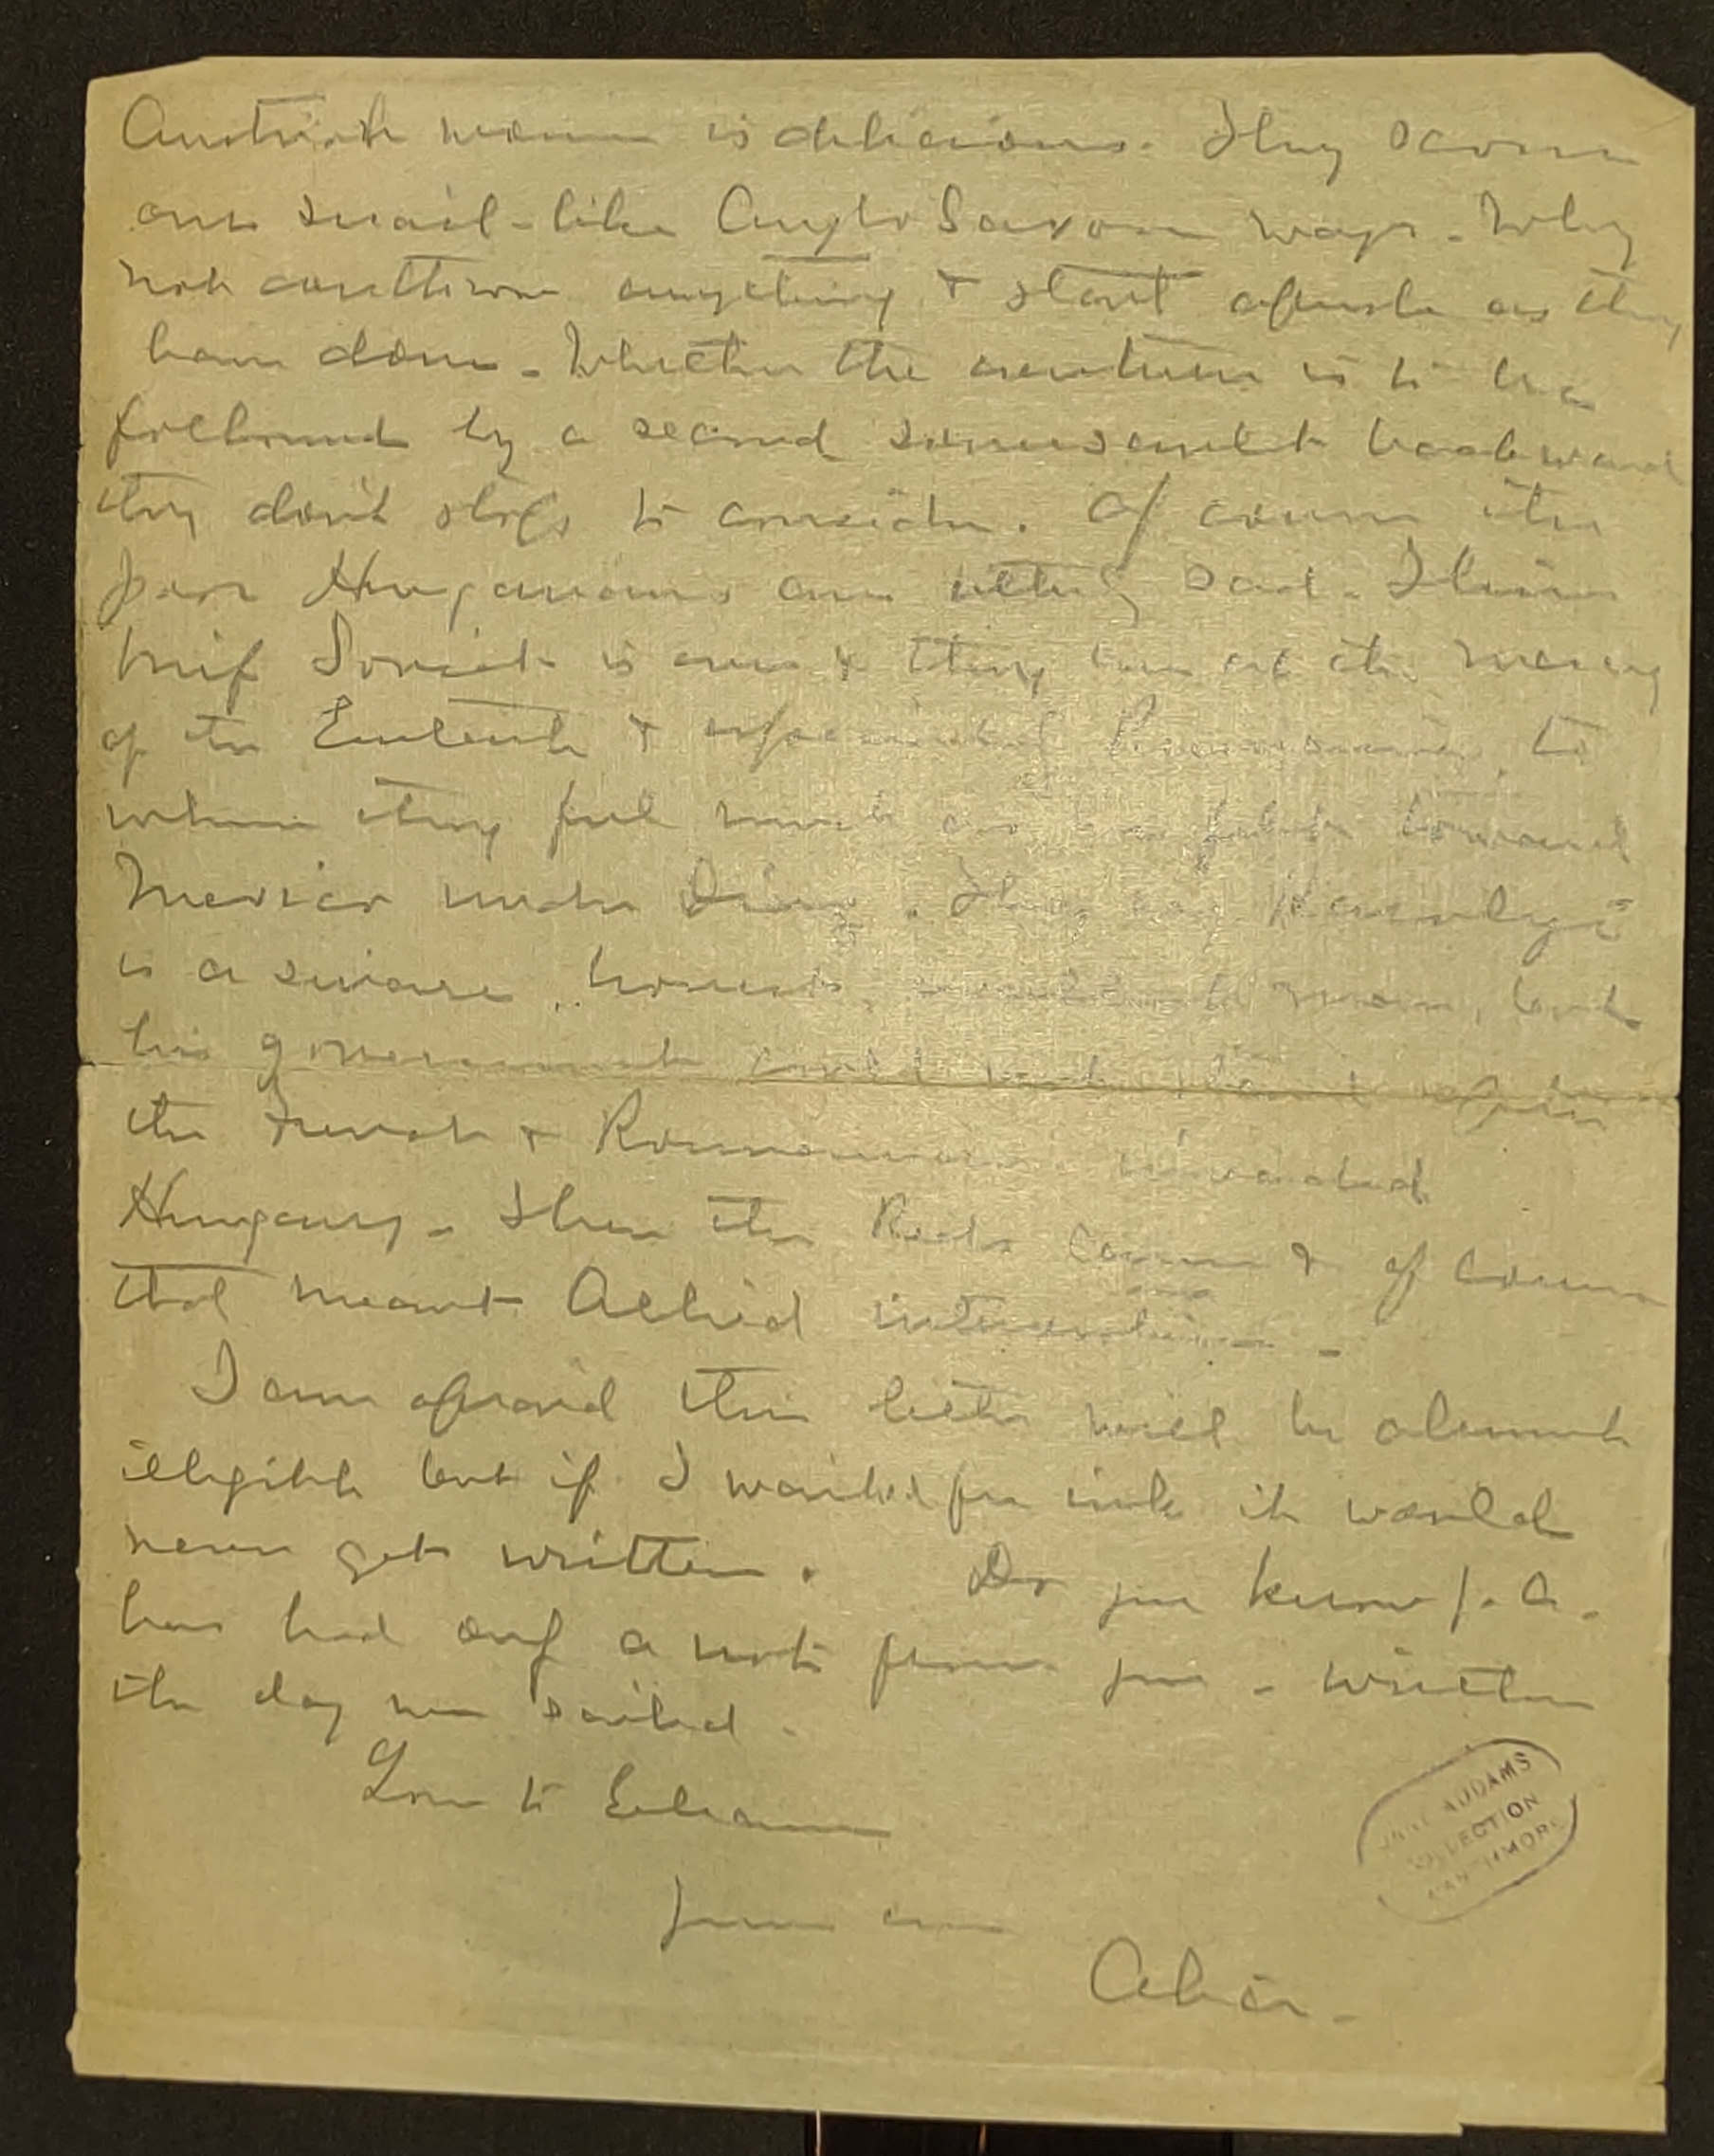 Austrian women is delicious. They scorn
our snail-like Anglo Saxon ways. Why
not overthrow anything & start afresh as they
have done. Whether the overturn is to be
followed by a second somersault backward
they don't stop to consider. Of course the
poor Hungarians are utterly sad. Their
brief Soviet is over & they are at the mercy
of the Entente & especially Roumania, to
whom they feel much as we felt toward
Mexico under Diaz. They say Karolyi
is a sincere, honest, man, but
his government could not stand after
the French & Roumanians invaded
Hungary. Then the Reds came & of course
that meant Allied intervention.
I am afraid this letter will be almost
illegible but if I waited for ink it would
never get written. Do you know J. A.
has had only a note from you - written
the day we sailed.
Love to
Yours ever
Alice.
JANE ADDAMS
COLLECTION
SWARTHMORE